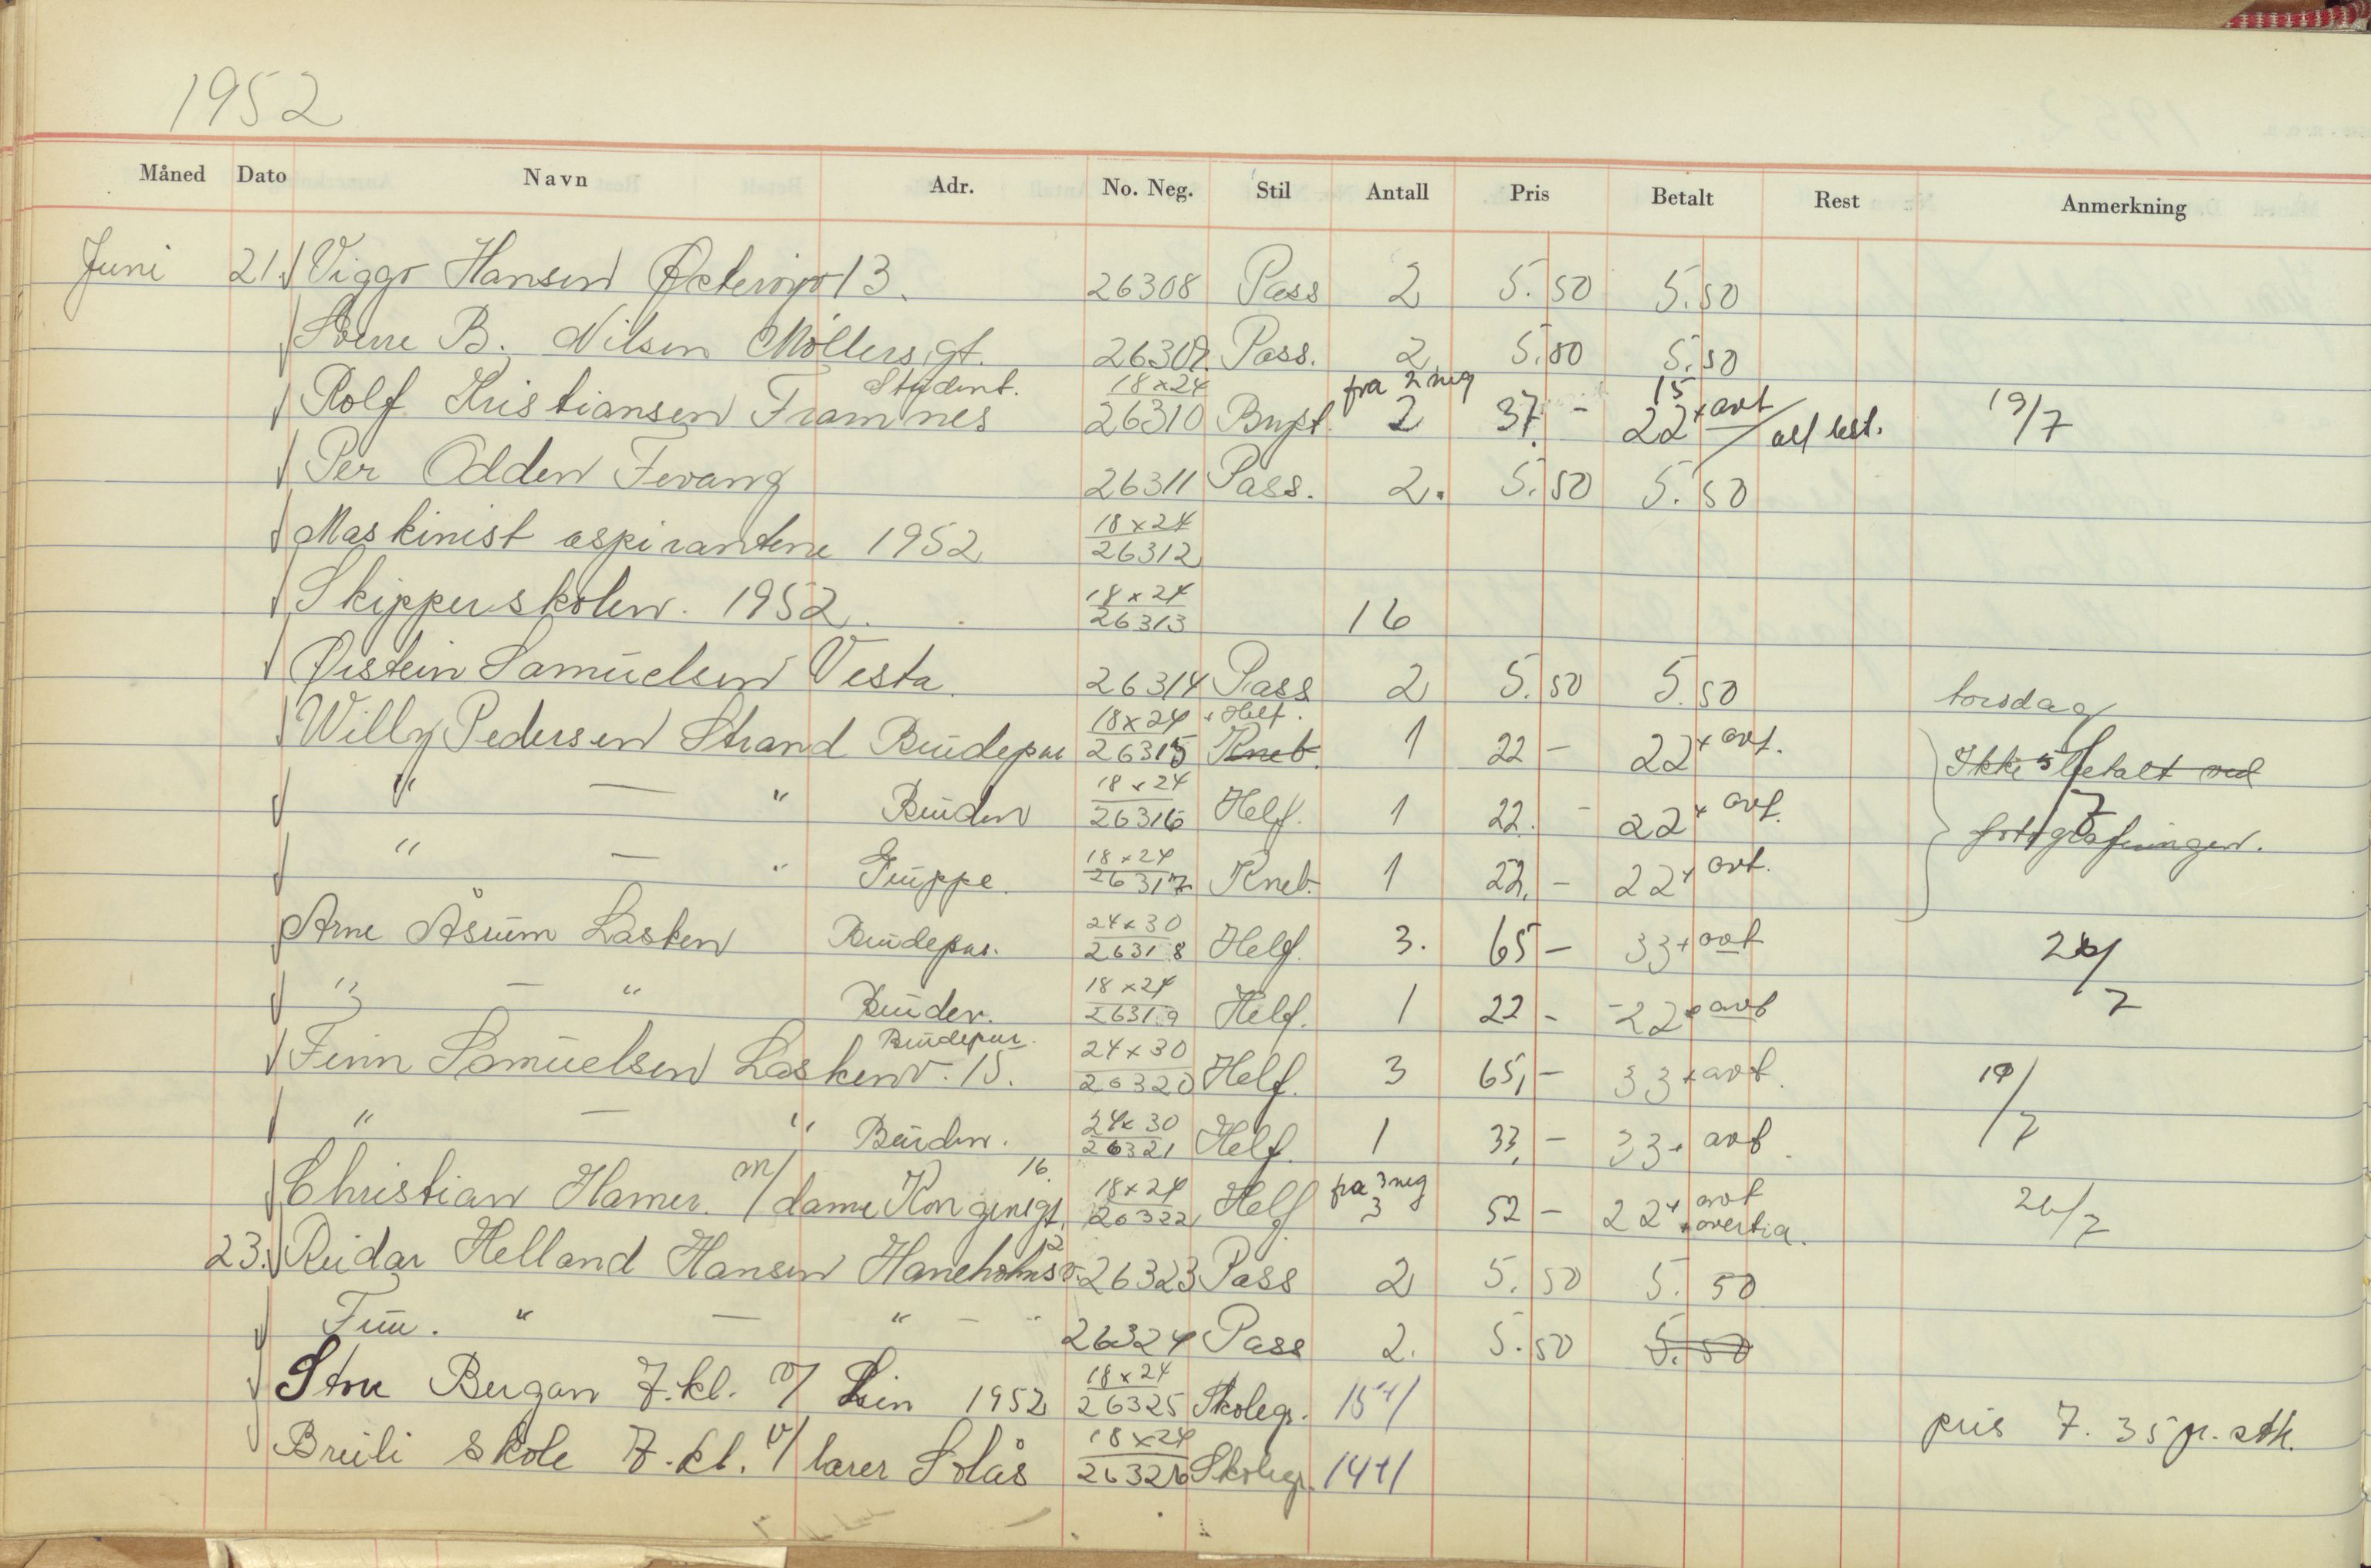 1952
Måned Dato Navn Adr. No. Neg. Stil Antall Pris Betalt Rest Anmerkning
Juni 21. Viggo Hansen 13. 26308 Pass 2 5.50 5.50
Sverre B. Nilsen Möllers gt. 26309 Pass. 2 5.50 5.50
Rolf Kristiansen Framnes Student. 18x24 26310 Bryst. fra 2 neg 2 37.- 15 22+ avt 19/7
Per Odden Fevang 26311 Pass. 2. 5.50 5.50
Maskinist aspirantene 1952 18x24 26312
Skipperskolen. 1952. 18x24 26313 16
Øistein Samuelsen Vesta. 26314 Pass 2 5.50 5.50
Willy Pedersen Strand Brudepar 18x24 26315 + Helf. Kneb. 1 22- 22+ avt. torsdag Ikke betalt ved
" — " Bruden 18x24 26316 Helf. 1 22.- 22+ avt. fotograferingen.
" — " Gruppe. 18x24 26317 Kneb. 1 22,- 22+ avt.
Arne Åsrum Lasken Brudepar. 24x30 26318 Helf. 3. 65- 33+ avt 26/7
" — " Bruden. 18x24 26319 Helf. 1 22- 22+ avt
Finn Samuelsen Laskenv. 15. Brudepar. 24x30 26320 Helf. 3 65,- 33+ avt. 19/7
" — " Bruden. 24x30 26321 Helf. 1 33,- 33+ avt.
Christian Hamer. m/dame Kongensgt. 16. 18x24 26322 Helf fra 3 neg 3 52- 22+ avt + overtid. 26/7
23. Reidar Helland Hansen Haneholmsv. 12 26323 Pass 2 5.50 5.50
Fru. " — " - " 26324 Pass 2. 5.50 5.50
Store Bergan 7.kl. v/ Lein 1952 18x24 26325 Skolegr. 15+1
Breili skole 7.kl. v/ lærer Solås 18x24 26326 Skolegr. 14+1 pris 7.35 pr. stk.